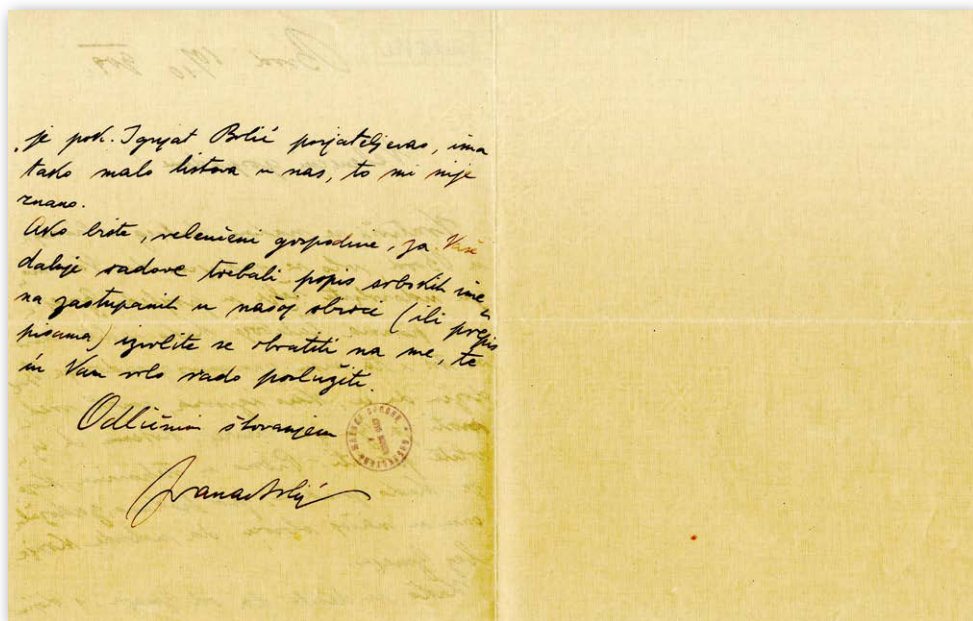 je pok. Ignjat Brlić prijateljevao, ima
tako malo listova u nas, to mi nije
znano.
Ako biste, veleučeni gospodine, za Vaše
dalje radove trebali popis srbskih ime-
na zastupanih u našoj sbirci (ili prepis
pisama) izvolite se obratiti na me, te
ću Vam vrlo rado poslužiti.
Odličnim štovanjem
Ivana Brlić